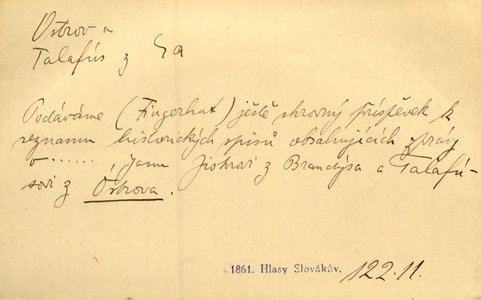 Ostrov
Talafús z
Podáváme (Fingerhut) ještě skrovný příspěvek k
seznamu historických spisů obsahujících zprávy
o ......, Janu Jiskrovi z Brandýsa a Talafú-
sovi z Ostrova.
1861. Hlasy Slovákův. 122.11.